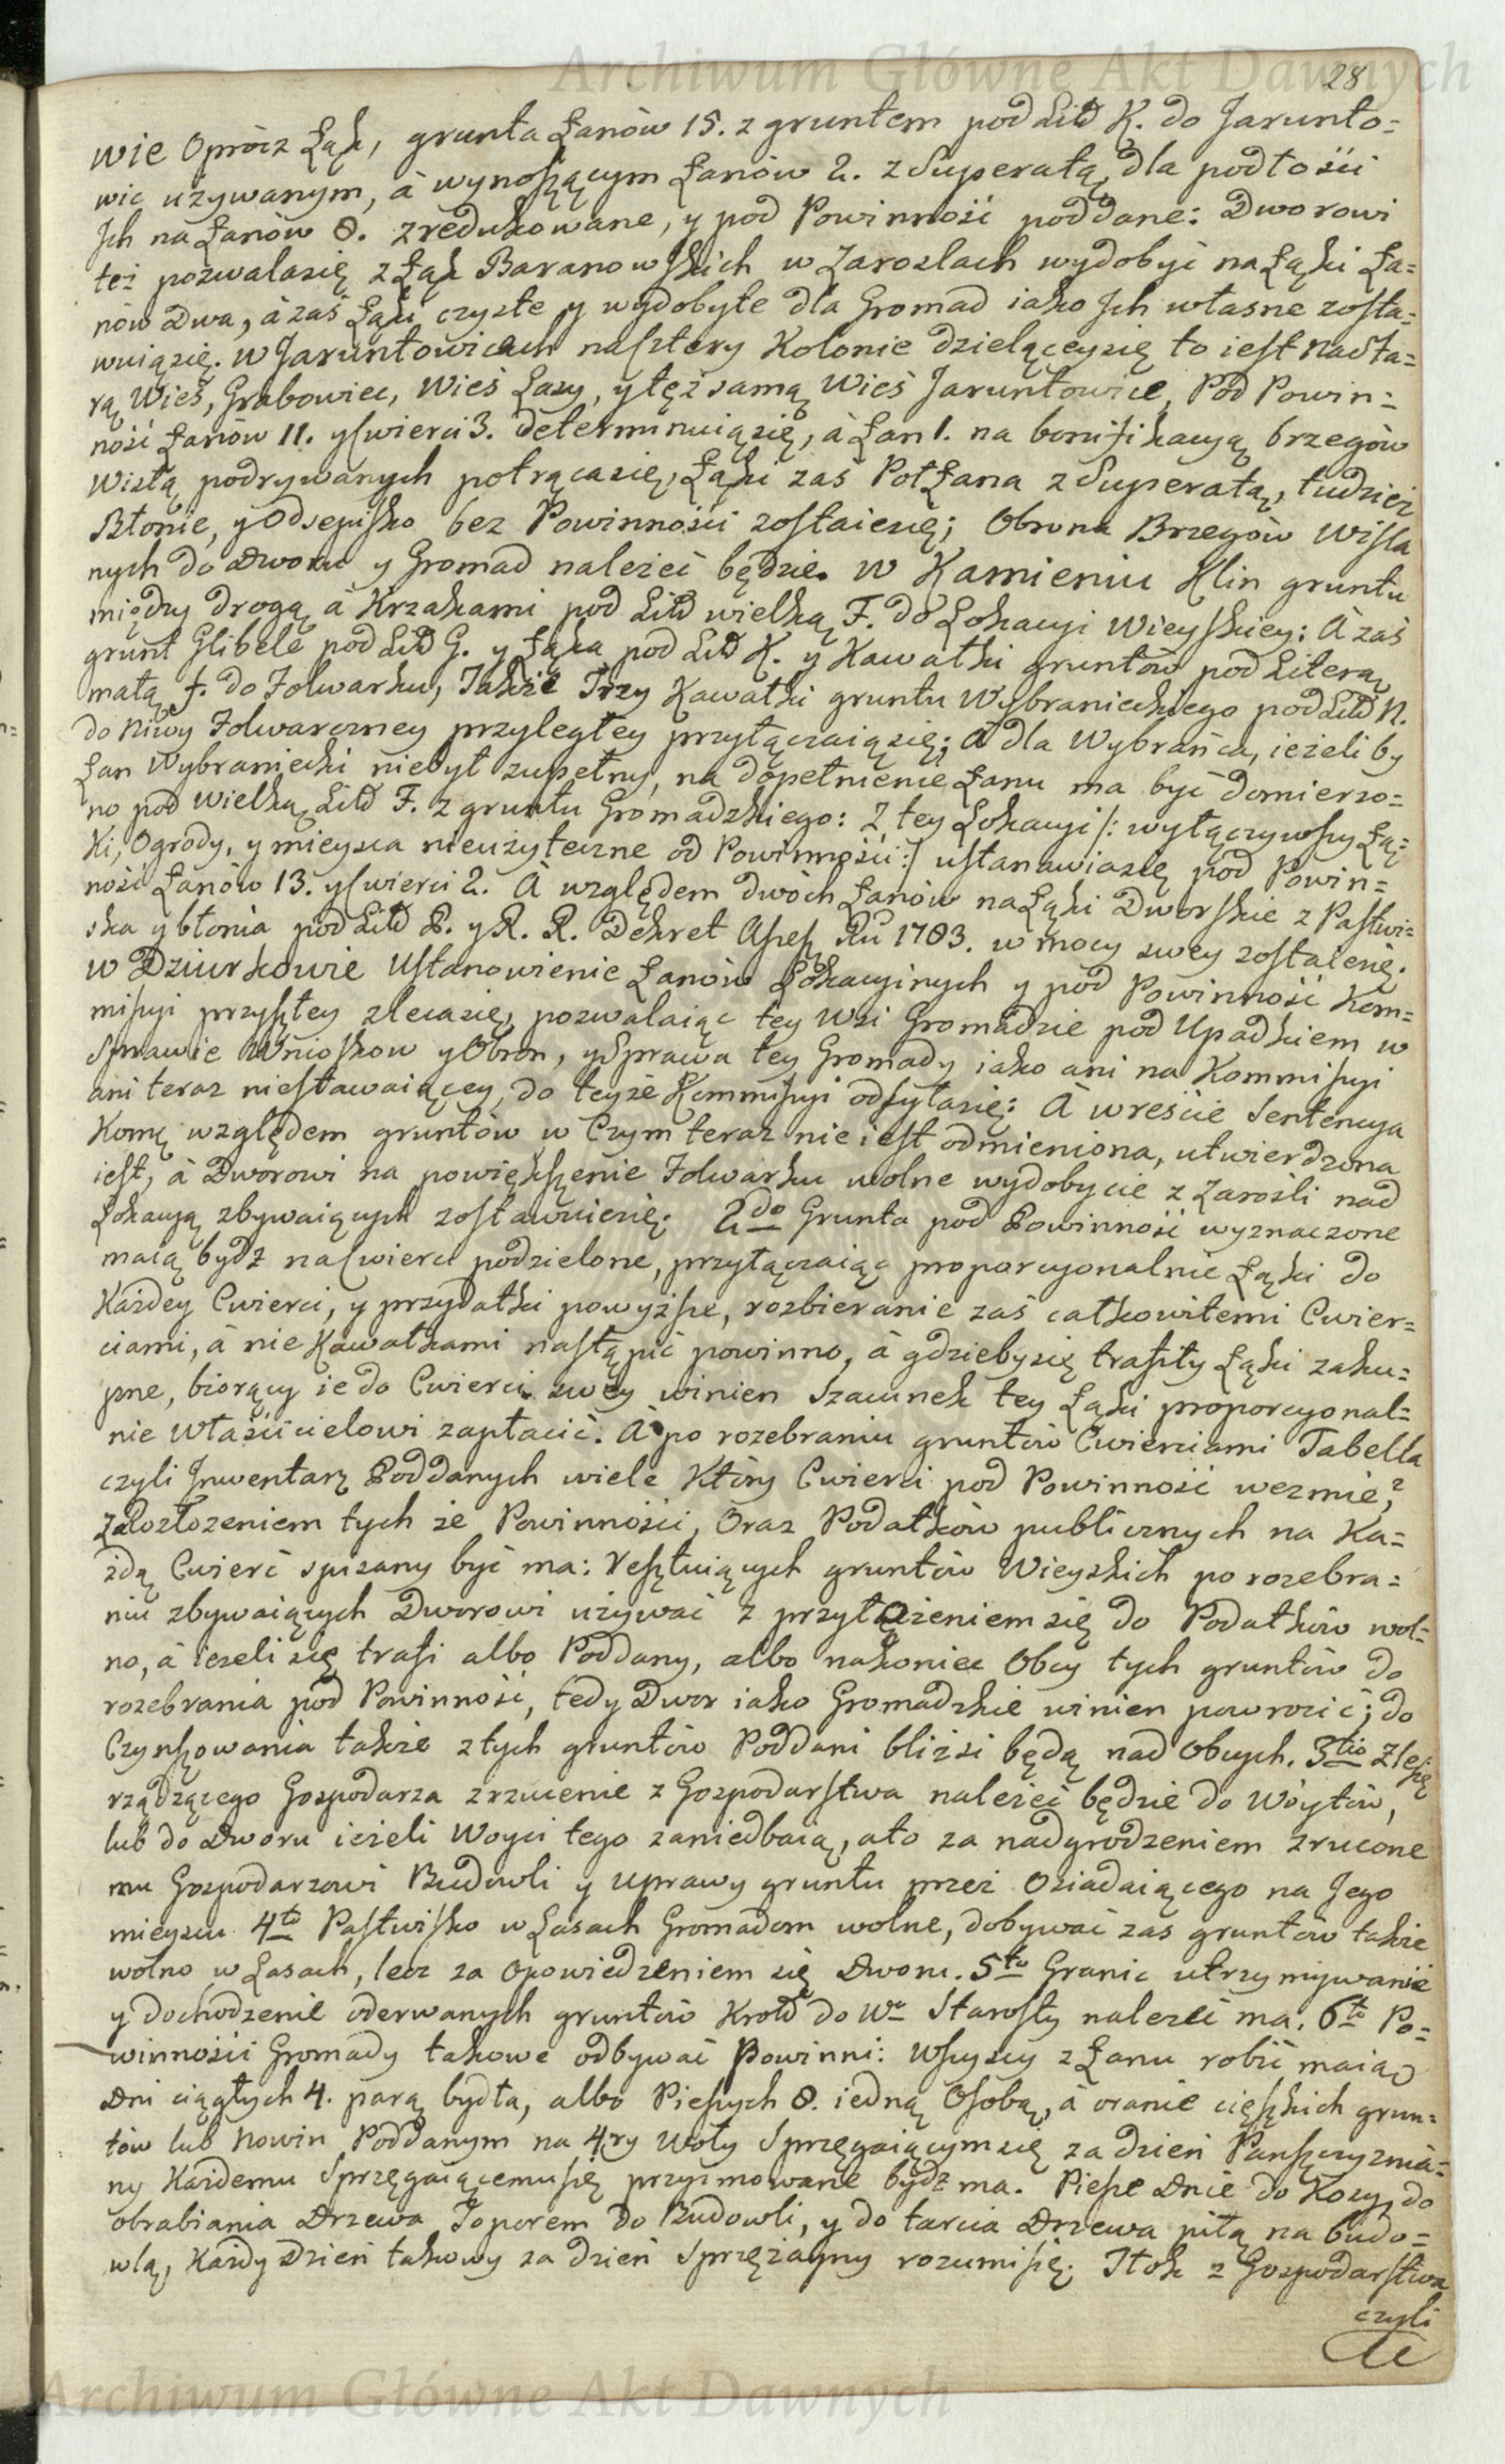 Archiwum Główne Akt Dawnych
28
wie Oprócz Łąk, grunta Łanów 15. z gruntem pod Litt K. do Jarunto=
wic używanym, à wynoszącym Łanów 2. z Superatą, dla podłości
Jch na Łanów 8. zredukowane, y pod Powinność poddane: Dworowi
też pozwalasię z Łąk Baranowskich w Zaroslach wydobyć na Łąki Ła=
nów Dwa, à zaś Łąki czyste y wydobyte dla Gromad iako Jch własne zosta=
wuiąsię. w Jaruntowicach nasztery Kolonie dzielącey się to iest na Sta=
rą Wieś, Grabowiec, Wieś Łazy, y tęż samą Wieś Jaruntowice, Pod Powin=
ność Łanów 11. y Cwierci 3. determinuią się, à Łan 1. na bonifikacyą brzegów
Wisłą podrywanych potrącasię, Łąki zaś Poł Łana z Superatą, tudzież
Błonie, y Odsepisko bez Powinności zostaiesię; Obrona Brzegów Wisla
nych do Dworu y Gromad należeć będzie. w Kamieniu Klin gruntu
między drogą à Krzakami pod Litt wielką F. do Lokacyi Wieyskiey: À zaś
grunt Glibele pod Litt G. y Łąka pod Litt K. y Kawałki gruntów pod Literą
małą f. do Folwarku, Także Trzy Kawałki gruntu Wybranieckiego pod Litt N.
do Niwy Folwarczney przyległey przyłączaiąsię; à dla Wybrańca, ieżeli by
Łan Wybraniecki niebył zupełny, na dopełnienie Łanu ma być domierzo=
no pod wielką Litt F. z gruntu Gromadzkiego: Z tey Lokacyi /: wyłączywszy Łą=
Ki, Ogrody, y mieysca nieużyteczne od Powinności :/ ustanawiasię pod Powin=
ność Łanów 13. y Cwierci 2. À względem dwóch Łanów na Łąki Dworskie z Pastwi=
ska y błonia pod Litt P. y R. R. Dekret Assess Ru 1783. w mocy swey zostaiesię.
w Dziurkowie Ustanowienie Łanów Lokacyinych y pod Powinność Kom=
missyi przyszłey zlecasię, pozwalaiąc tey Wsi Gromadzie pod Upadkiem w
Sprawie Wniosków y Obron, y Sprawa tey Gromady iako ani na Kommissyi
ani teraz niestawaiącey, do teyże Kommissyi odsyłasię: À wreście Sentencya
Komę względem gruntów w Czym teraz nie iest odmieniona, utwierdzona
iest, à Dworowi na powiększenie Folwarku wolne wydobycie z Zarośli nad
Lokacyą zbywaiących zostawuiesię. 2do Grunta pod Powinność wyznaczone
maią bydź na Cwierci podzielone, przyłączaiąc proporcyonalnie Łąki do
Każdey Cwierci, y przydatki powyższe, rozbieranie zaś całkowitemi Cwier=
ciami, à nie Kawałkami nastąpić powinno, à gdzieby się trafiły Łąki zaku=
pne, biorący ie do Cwierci swey winien Szacunek tey Łąki proporcyonal=
nie Właścicielowi zapłacić. À po rozebraniu gruntów Cwierciami Tabella
czyli Jnwentarz Poddanych wiele Który Cwierci pod Powinność weźmie,
z dołożeniem tych że Powinności, Oraz Podatków publicznych na Ka=
żdą Cwierć spisany być ma: Resztuiących gruntów Wieyskich po rozebra=
niu zbywaiących Dworowi używać z przyłożeniem się do Podatków wol=
no, à ieżeli się trafi albo Poddany, albo nakoniec Obcy tych gruntów do
rozebrania pod Powinność, tedy Dwor iako Gromadzkie winien powrócić; do
Czynszowania także z tych gruntów Poddani bliżsi będą nad Obcych. 3tio Zle się
rządzącego Gospodarza zrzucenie z Gospodarstwa należeć będzie do Wóytów,
lub do Dworu ieżeli Woyci tego zaniedbaią, ato za nadgrodzeniem zrucone
mu Gospodarzowi Budowli y Uprawy gruntu przez Osiadaiącego na Jego
mieyscu 4to Pastwisko w Lasach Gromadom wolne, dobywać zas gruntów także
wolno w Lasach, lecz za Opowiedzeniem się Dworu. 5to Granic utrzymywanie
y dochodzenie oderwanych gruntów Krolł do Wo Starosty należeć ma. 6to Po=
winności Gromady takowe odbywać Powinni: Wszyscy z Łanu robić maią
Dni ciągłych 4. parą bydła, albo Pieszych 8. iedną Osobą, à oranie cięższkich grun=
tów lub Nowin Poddanym na 4ry Woły Sprzęgaiącym się za dzień Pańszczyznia=
ny Każdemu Sprzęgaiącemu się przyimowane bydź ma. Piesze Dnie do Kosy, do
obrabiania Drzewa Toporem do Budowli, y do tarcia Drzewa piłą na budo=
wlą, Każdy Dzień takowy za dzień Sprzężayny rozumi się. Tłok z Gospodarstwa
czyli
Archiwum Główne Akt Dawnych